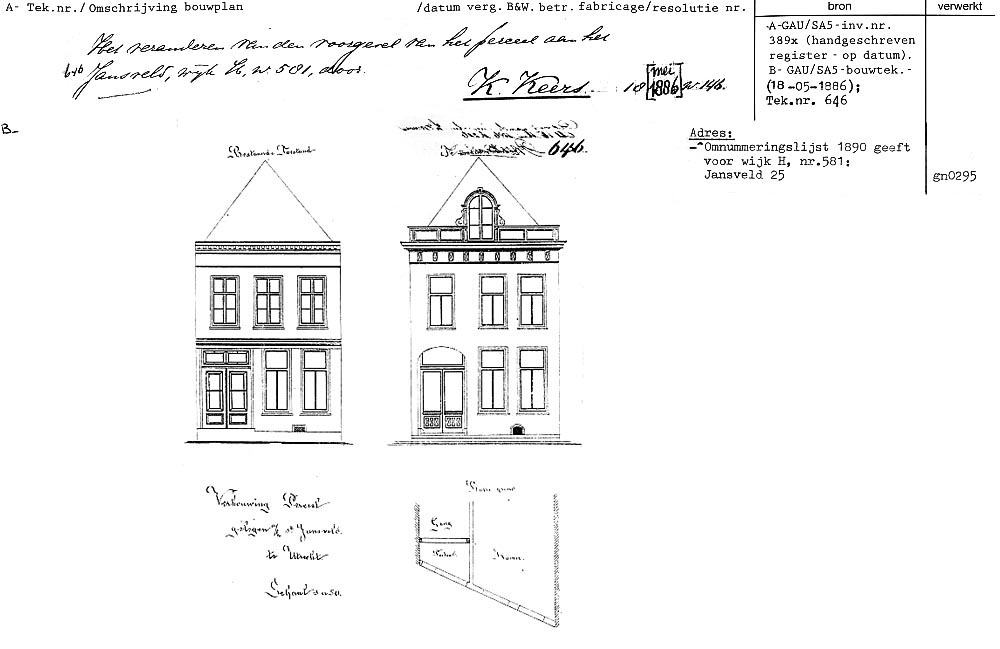 A- Tek.nr./Omschrijving bouwplan /datum verg. B&W. betr. fabricage/resolutie nr. bron verwerkt
Het veranderen van den voorgevel van het perceel aan het
Jansveld, wijk H, nº 581, door
K. Keers. 18 [mei 1886] nº 146.
A-GAU/SA5-inv.nr.
389x (handgeschreven
register - op datum).
B- GAU/SA5-bouwtek.-
(18-05-1886);
Tek.nr. 646
B-
Adres:
-Omnummeringslijst 1890 geeft
voor wijk H, nr.581:
Jansveld 25
gn0295
Bestaande Toestand
646.
Verbouwing Perceel
gelegen a/h St Jansveld.
te Utrecht
Schaal 1 a 50.
Gang
Kamer.